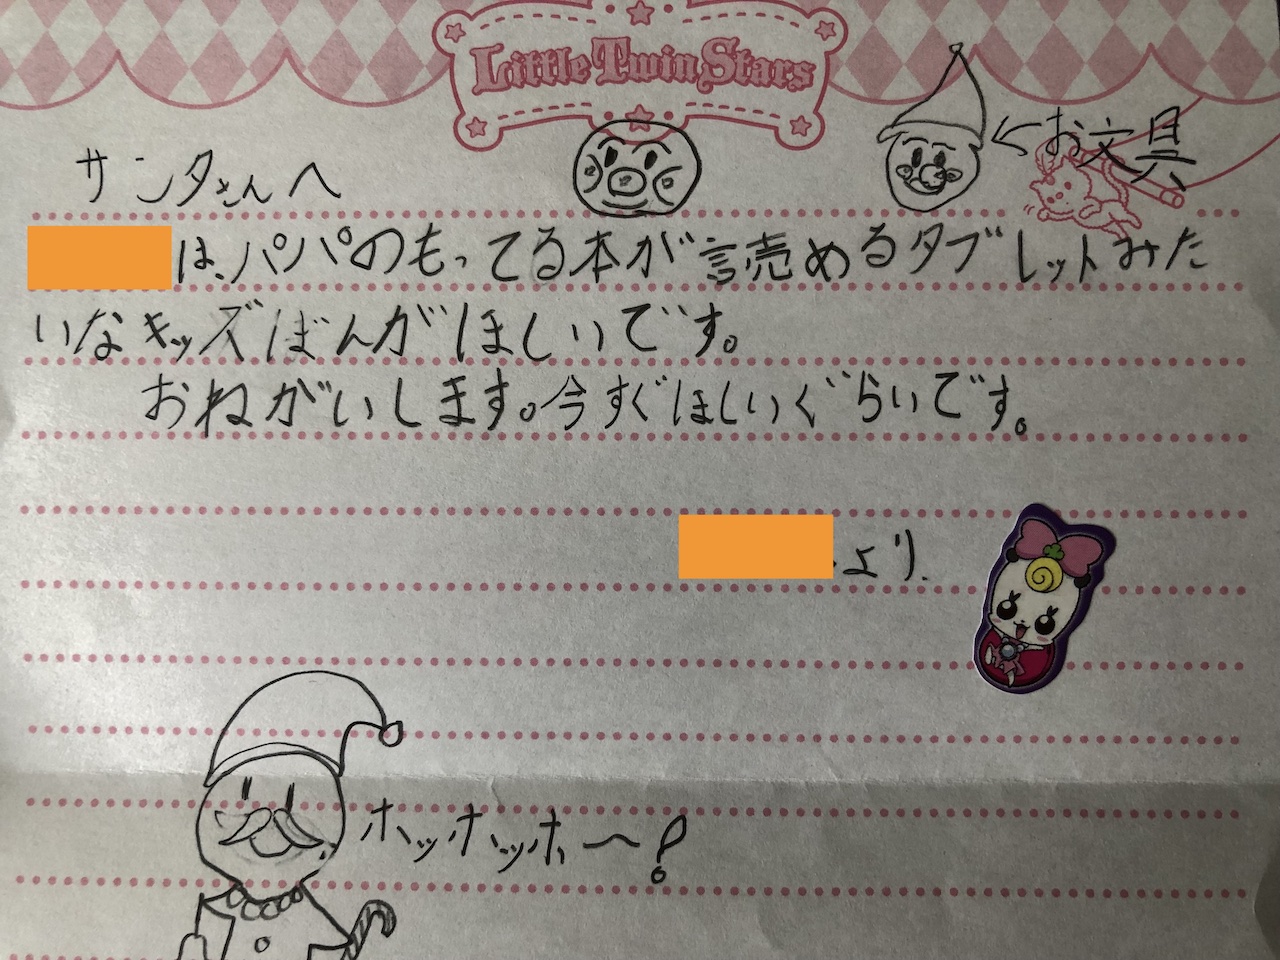 Little Twin Stars
←お文具
サンタさんへ
は、パパのもってる本が読めるタブレットみた
いなキッズばんがほしいです。
おねがいします。今すぐほしいぐらいです。
より
ホッホッホー!